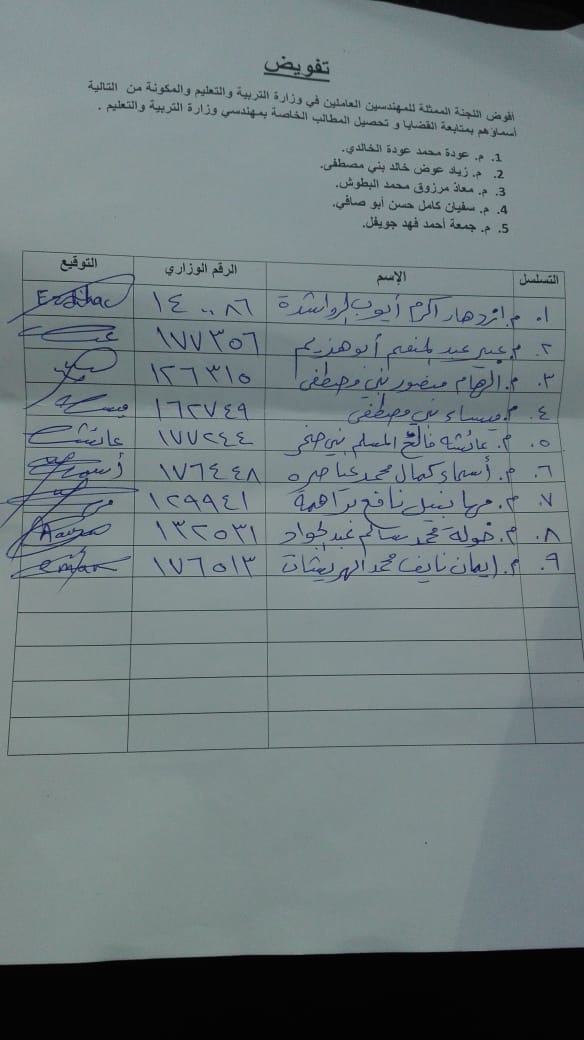 تفويض
أفوض اللجنة الممثلة للمهندسين العاملين في وزارة التربية والتعليم والمكونة من التالية
أسماؤهم بمتابعة القضايا و تحصيل المطالب الخاصة بمهندسي وزارة التربية والتعليم .
1. م. عودة محمد عودة الخالدي.
2. م. زياد عوض خالد بني مصطفى.
3. م. معاذ مرزوق محمد البطوش.
4. م. سفيان كامل حسن أبو صافي.
5. م. جمعة أحمد فهد جويفل.
التسلسل الإسم الرقم الوزاري التوقيع
١. م. ازدهار اكرم أيوب الرواشدة ١٤٠٠٨٦
٢. م. عبير عبد المنعم أبو هذيم ١٧٧٣٥٦
٣. م. الهام منصور بني مصطفى ١٢٦٣١٥
٤. م. ميساء بني مصطفى ١٦٢٧٤٩
٥. م. عائشة فالح المسلم بني صخر ١٧٧٢٤٤ عائشة
٦. م. أسماء كمال محمد عناصره ١٧٦٤٤٨ أسماء
٧. م. مها نبيل نافع براهمة ١٢٩٩٤١
٨. م. خولة محمد سالم عبد الجواد ١٣٢٥٣١
٩. م. ايمان نايف محمد ١٧٦٥١٣ eman